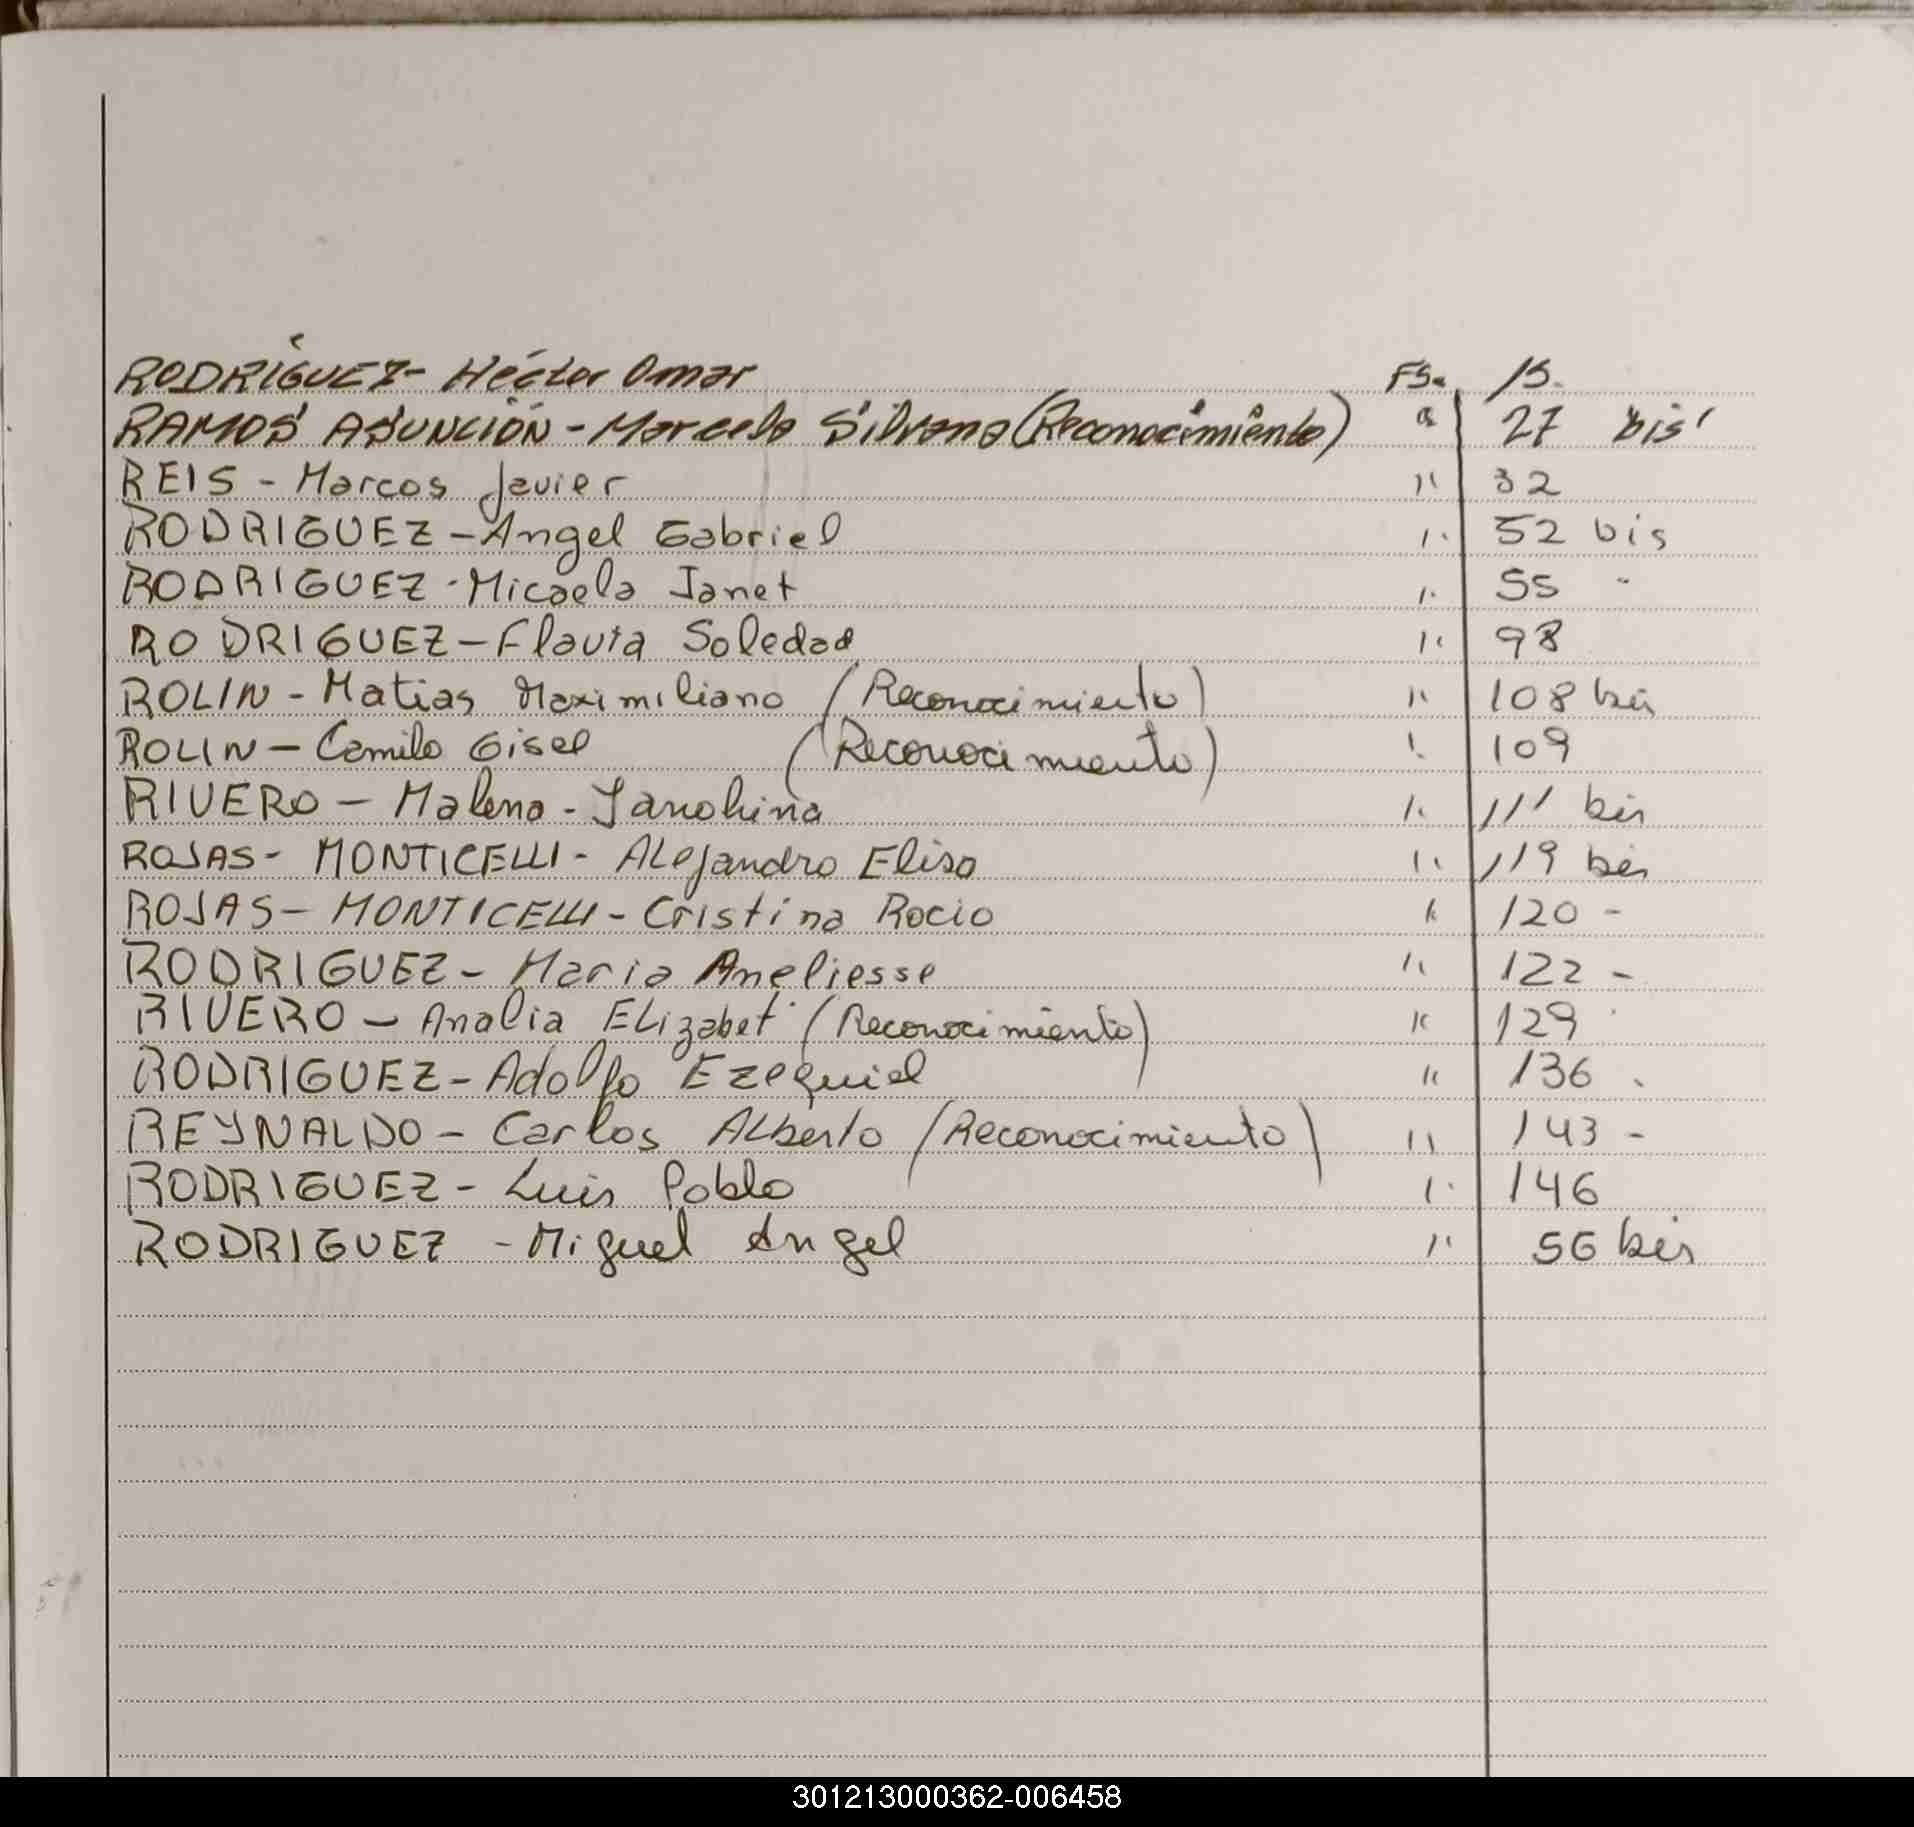 RODRÍGUEZ- Héctor Omar FS. 15.
RAMOS ASUNCIÓN - Marcela Silvana (Reconocimiento) " 27 bis
REIS - Marcos Javier " 32
RODRIGUEZ - Angel Gabriel " 52 bis
RODRIGUEZ - Micaela Janet " 55 -
RODRIGUEZ - Flavia Soledad " 98
ROLIN - Matias Maximiliano (Reconocimiento) " 108 bis
ROLIN - Camila Gisel (Reconocimiento) " 109
RIVERO - Malena - " 111 bis
ROJAS - MONTICELLI - Alejandra Elisa " 119 bis
ROJAS - MONTICELLI - Cristina Rocio " 120 -
RODRIGUEZ - Maria Aneliesse " 122 -
RIVERO - Analia Elizabet (Reconocimiento) " 129
RODRIGUEZ - Adolfo Ezequiel " 136
REYNALDO - Carlos Alberto (Reconocimiento) " 143 -
RODRIGUEZ - Luis Pablo " 146
RODRIGUEZ - Miguel Angel " 56 bis
301213000362-006458